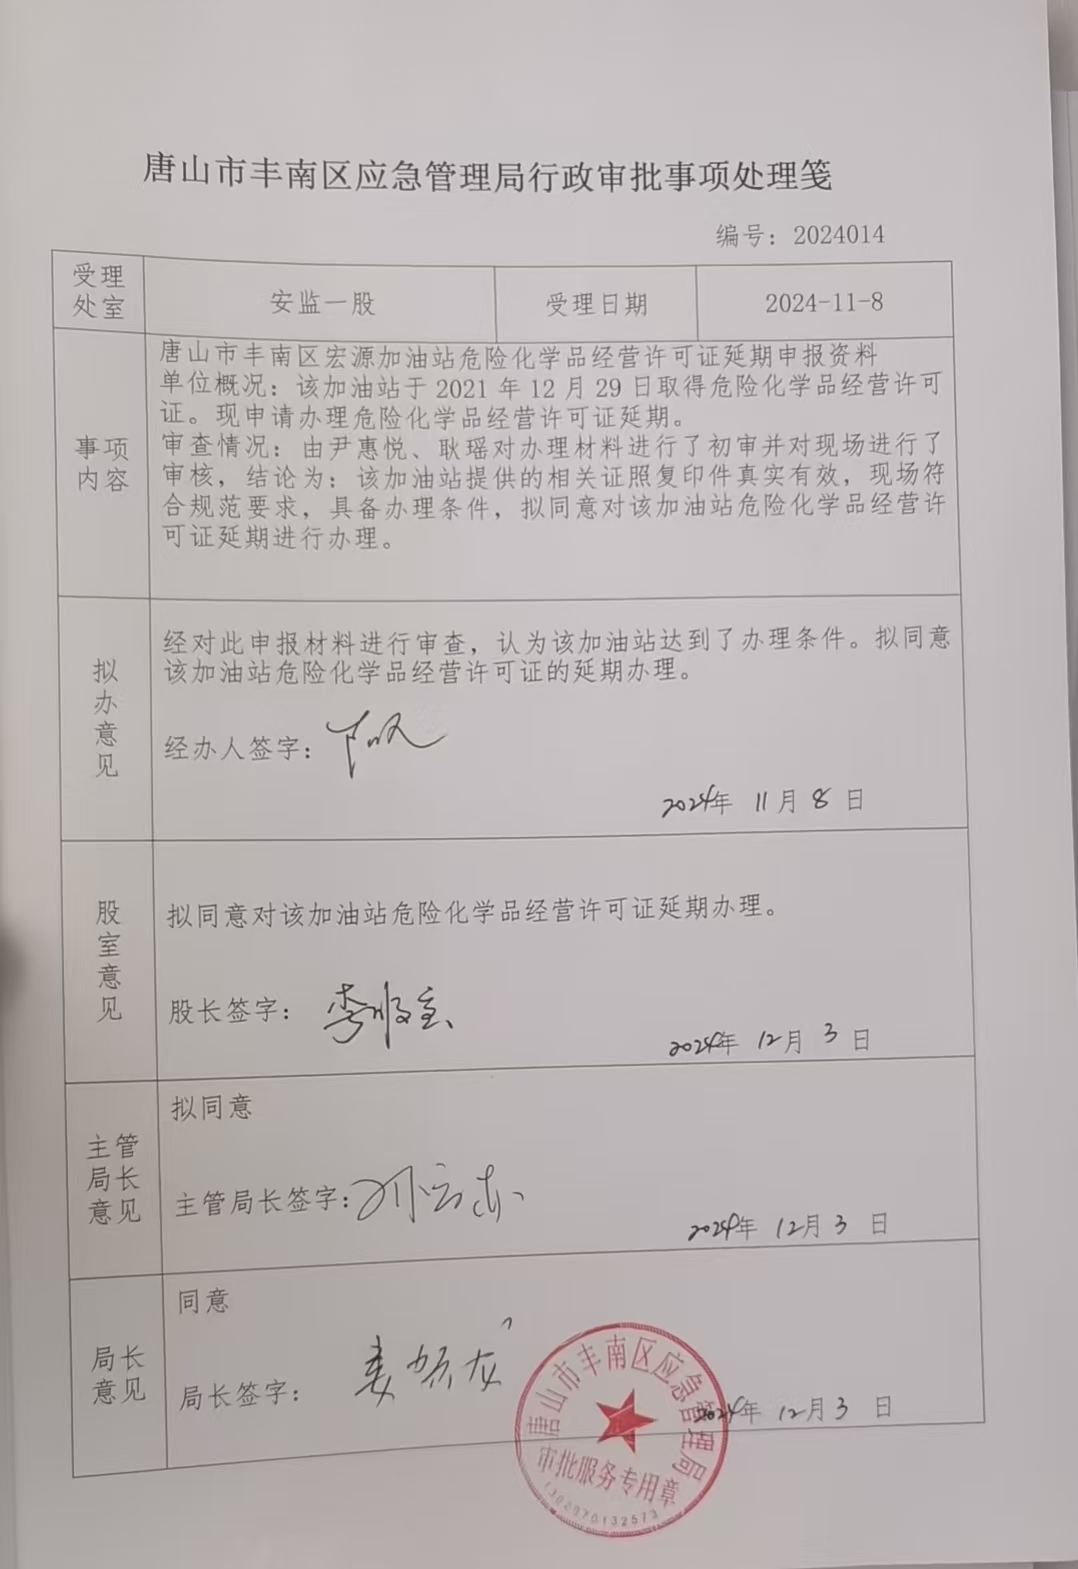 唐山市丰南区应急管理局行政审批事项处理笺
编号：2024014
受理
处室
安监一股
受理日期
2024-11-8
事项
内容
唐山市丰南区宏源加油站危险化学品经营许可证延期申报资料
单位概况：该加油站于 2021 年 12 月 29 日取得危险化学品经营许可
证。现申请办理危险化学品经营许可证延期。
审查情况：由尹惠悦、耿瑶对办理材料进行了初审并对现场进行了
审核，结论为：该加油站提供的相关证照复印件真实有效，现场符
合规范要求，具备办理条件，拟同意对该加油站危险化学品经营许
可证延期进行办理。
拟
办
意
见
经对此申报材料进行审查，认为该加油站达到了办理条件。拟同意
该加油站危险化学品经营许可证的延期办理。
经办人签字：
2024年 11月 8 日
股
室
意
见
拟同意对该加油站危险化学品经营许可证延期办理。
股长签字：
2024年 12月 3 日
主管
局长
意见
拟同意
主管局长签字：
2024年 12月 3 日
局长
意见
同意
局长签字：
2024年 12月 3 日
唐山市丰南区应急管理局
审批服务专用章